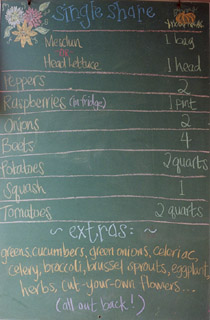 single share
Mesclun 1 bag
or
Head lettuce 1 head
Peppers 2
Raspberries (in fridge) 1 pint
Onions 2
Beets 4
Potatoes 2 quarts
Squash 1
Tomatoes 2 quarts
~ extras: ~
greens, cucumbers, green onions, celeriac,
celery, broccoli, brussel sprouts, eggplant,
herbs, cut-your-own flowers...
(all out back!)